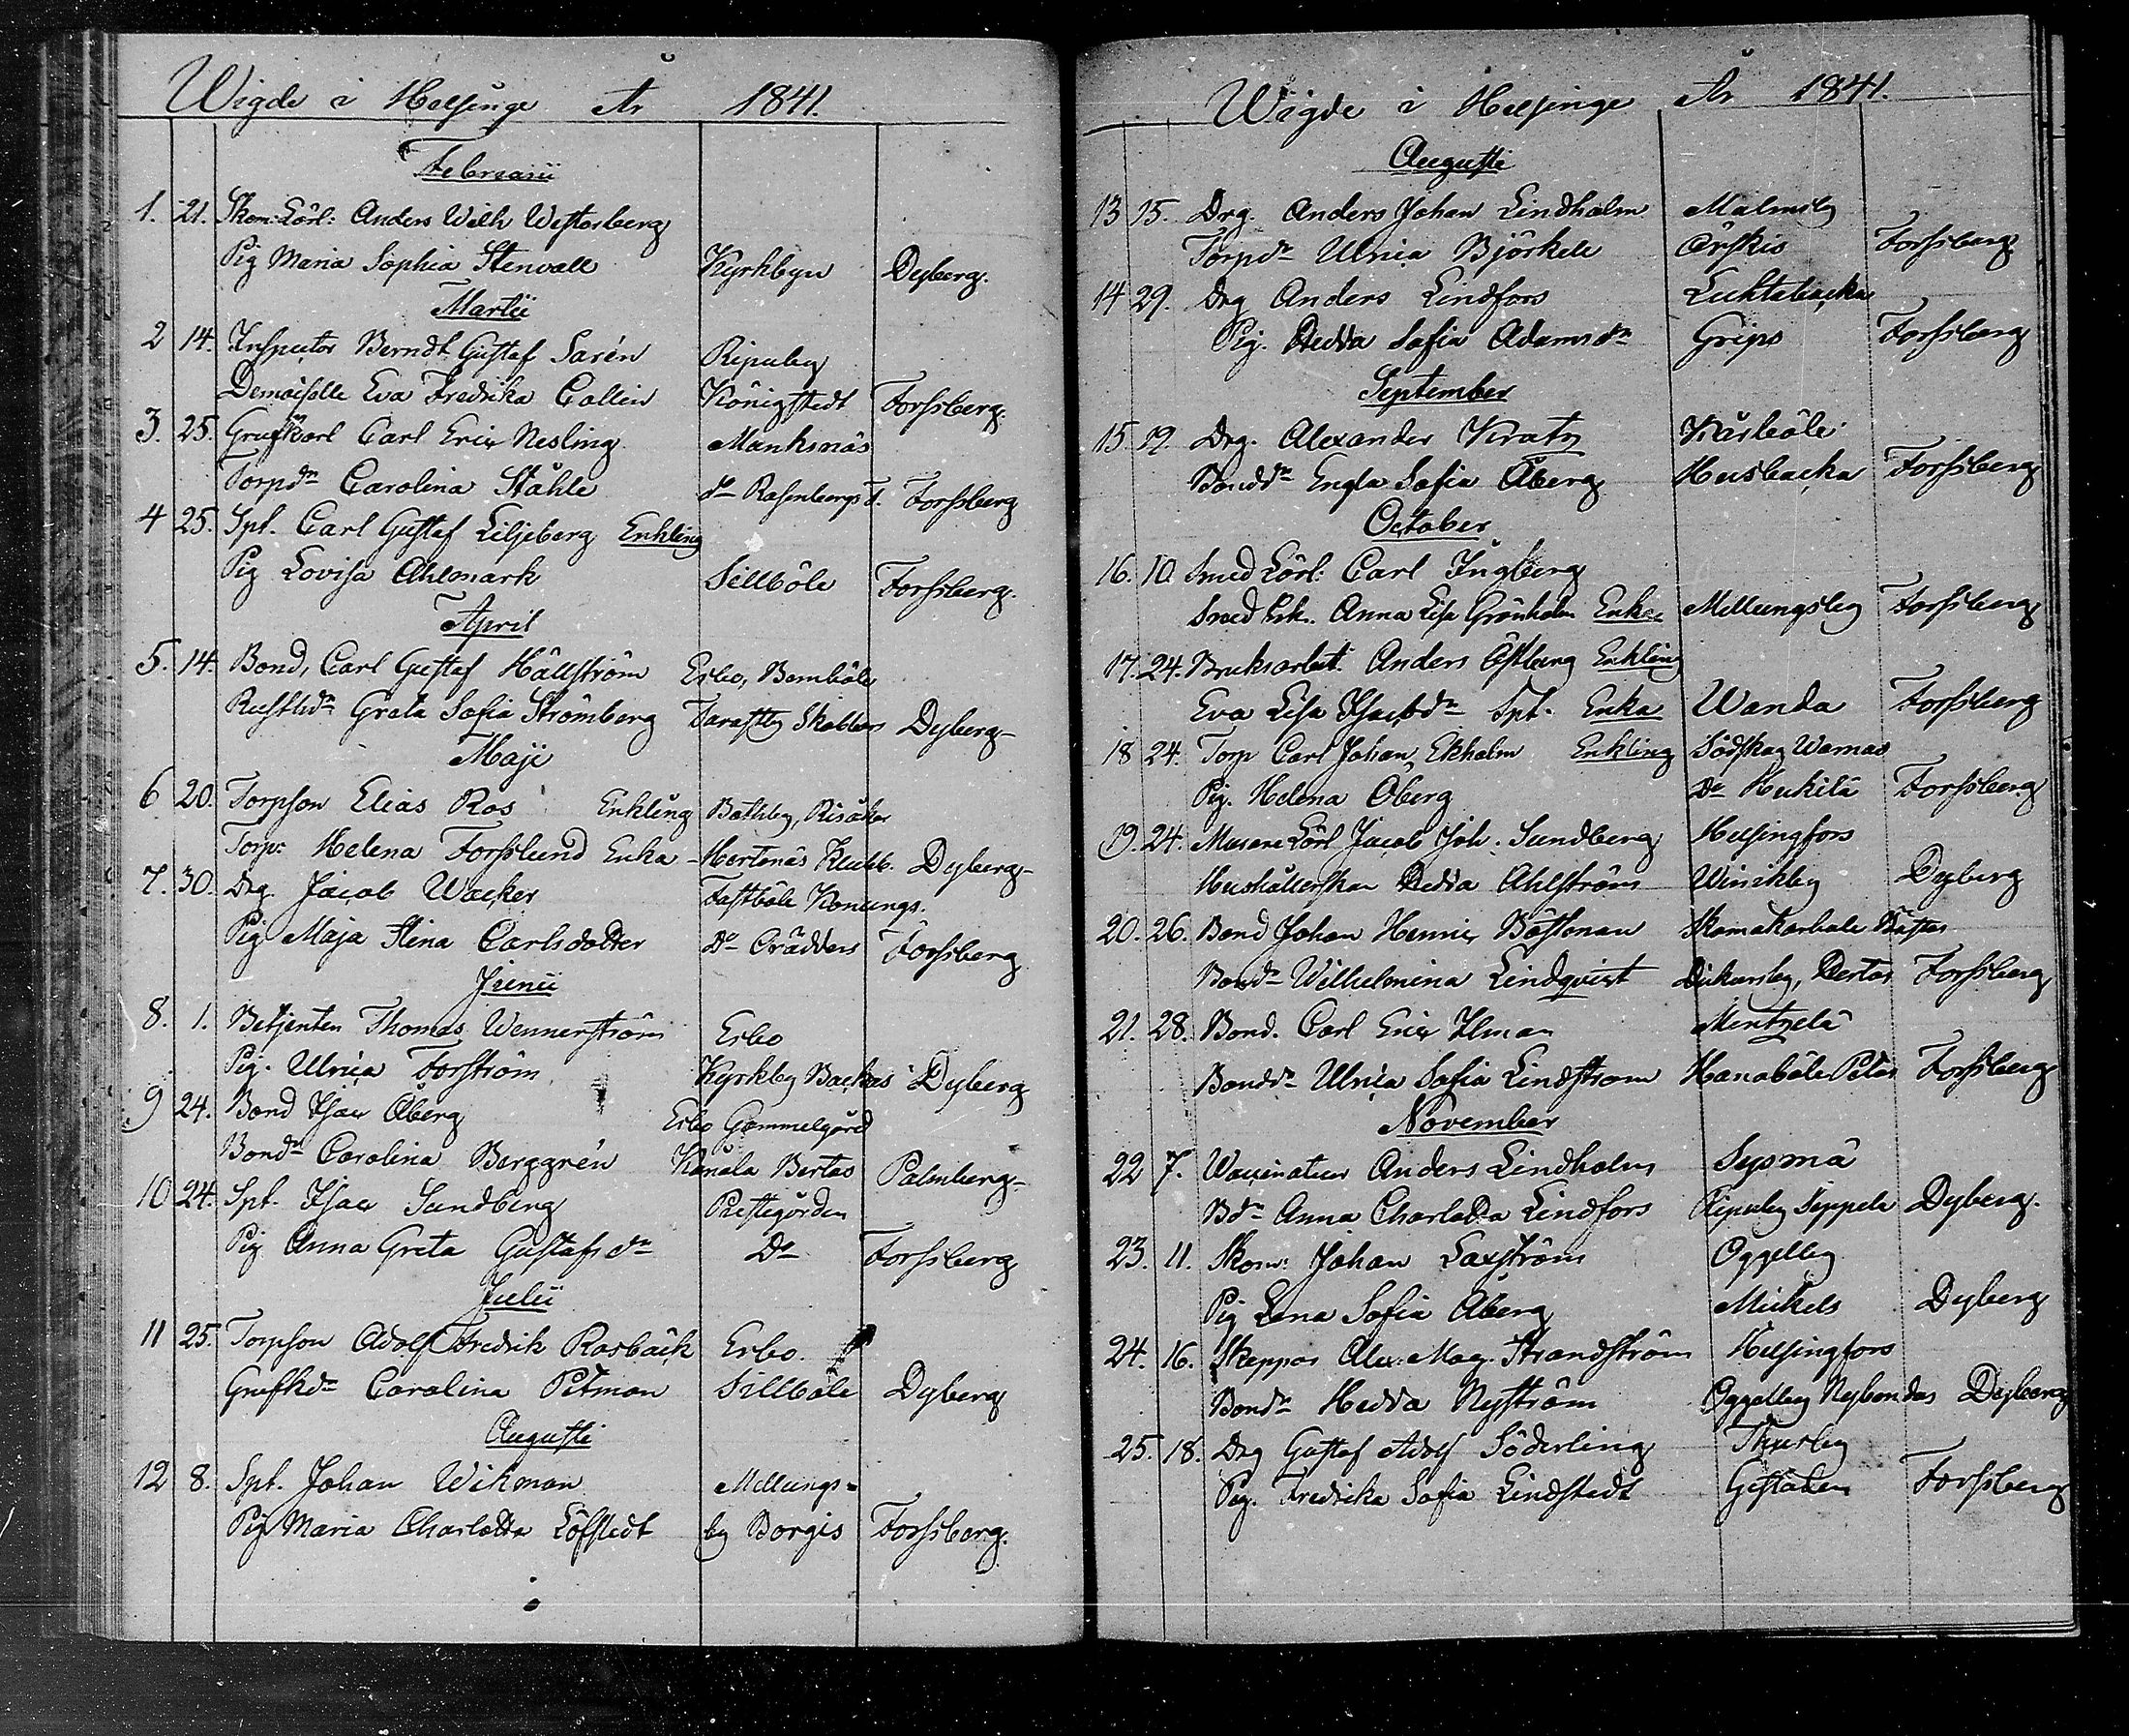 Wigde i Helsinge År 1841.
Februarii
1. 21. Skom: Lärl: Anders Wilh Westerberg
Pig Maria Sophia Stenvall Kyrkbyn Dyberg.
Martii
2 14. Inspector Berndt Gustaf Sarén Ripuby
Demoiselle Eva Fredrika Collin Königstedt Forssberg.
3. 25. Grufkarl Carl Eric Nesling Manksnäs
Torpdr Carolina Ståhle do Rosenbergs T. Forssberg
4 25. Spt. Carl Gustaf Liljeberg Enkling
Pig Lovisa Ahlmark Sillböle Forssberg.
April
5. 14. Bond, Carl Gustaf Hällström Esbo, Bemböle
Rusthdr Greta Sofia Strömberg Tavastby Skattars Dyberg
Maji
6 20. Torpson Elias Ros Enkling Botby, Risåker
Torp: Helena Forsslund Enka Hertonäs Klubb. Dyberg
7. 30. Drg. Jacob Wacker Fastböle Konungs.
Pig Maja Stina Carlsdotter Do Grädders Forssberg
Junii
8. 1. Betjenten Thomas Wennerström Esbo
Pig. Ulrica Forström Kyrkby Backas Dyberg
9 24. Bond Isac Åberg Esbo Gammelgård
Bonddr Carolina Berggrén Kånala Bertas Palmberg
10 24. Spt. Isac Sundberg Prestegården
Pig Anna Greta Gustafsdr Do Forssberg
Julii
11 25. Torpson Adolf Fredrik Rosbäck Esbo.
Grufkdr Carolina Pitman Sillböle Dyberg
Augusti
12 8. Spt. Johan Wikman Mellungs-
Pig Maria Charlotta Löfstedt by Borgis Forssberg.
Wigde i Helsinge År 1841.
Augusti
13 15. Drg. Anders Johan Lindholm Malmby
Torpdr Ulrica Björkell Forssberg
14 29. Drg Anders Lindfors Luktabacka
Pig. Hedda Sofia Adamsdr Grips Forssberg
September
15. 19. Drg. Alexander Kratz Kårböle
Bonddr Engla Sofia Åberg Husbacka Forssberg
October
16. 10. Smed Lärl: Carl Ingberg
Smed Enk. Anna Lisa Grönholm Enka Mellungsby Forssberg
17. 24. Bruksarbet. Anders Östberg Enkling
Eva Lisa Isacsdr Spt. Enka Wanda Forssberg
18 24. Torp Carl Johan Ekholm Enkling Södskog Warnas
Pig. Helena Öberg Do Hukila Forssberg
19. 24. Murare Lärl Jacob Joh. Sundberg Helsingfors
Hushållerskan Hedda Ahlström Winikby Dyberg
20. 26. Bond Johan Henric Böstman Skomakarböle Böstas
Bonddr Wilhelmina Lindqvist Dickursby, Bertas Forssberg
21. 28. Bond. Carl Eric Ilman Mentzelä
Bonddr Ulrica Sofia Lindstrom Hanaböle Petas Forssberg
November
22 7. Waccinateur Anders Lindholm Sysmä
Bdr Anna Charlotta Lindfors Ripuby Seppele Dyberg.
23. 11. Skom: Johan Laxström Oggelby
Pig Lena Sofia Åberg Mickels Dyberg
24. 16. Skeppar Alex. Mag. Strandström Helsingfors
Bonddr Hedda Nyström Oggelby Nybondas Dyberg
25. 18. Drg Gustaf Adolf Söderling Thusby
Pig. Fredrika Sofia Lindstedt Forssberg